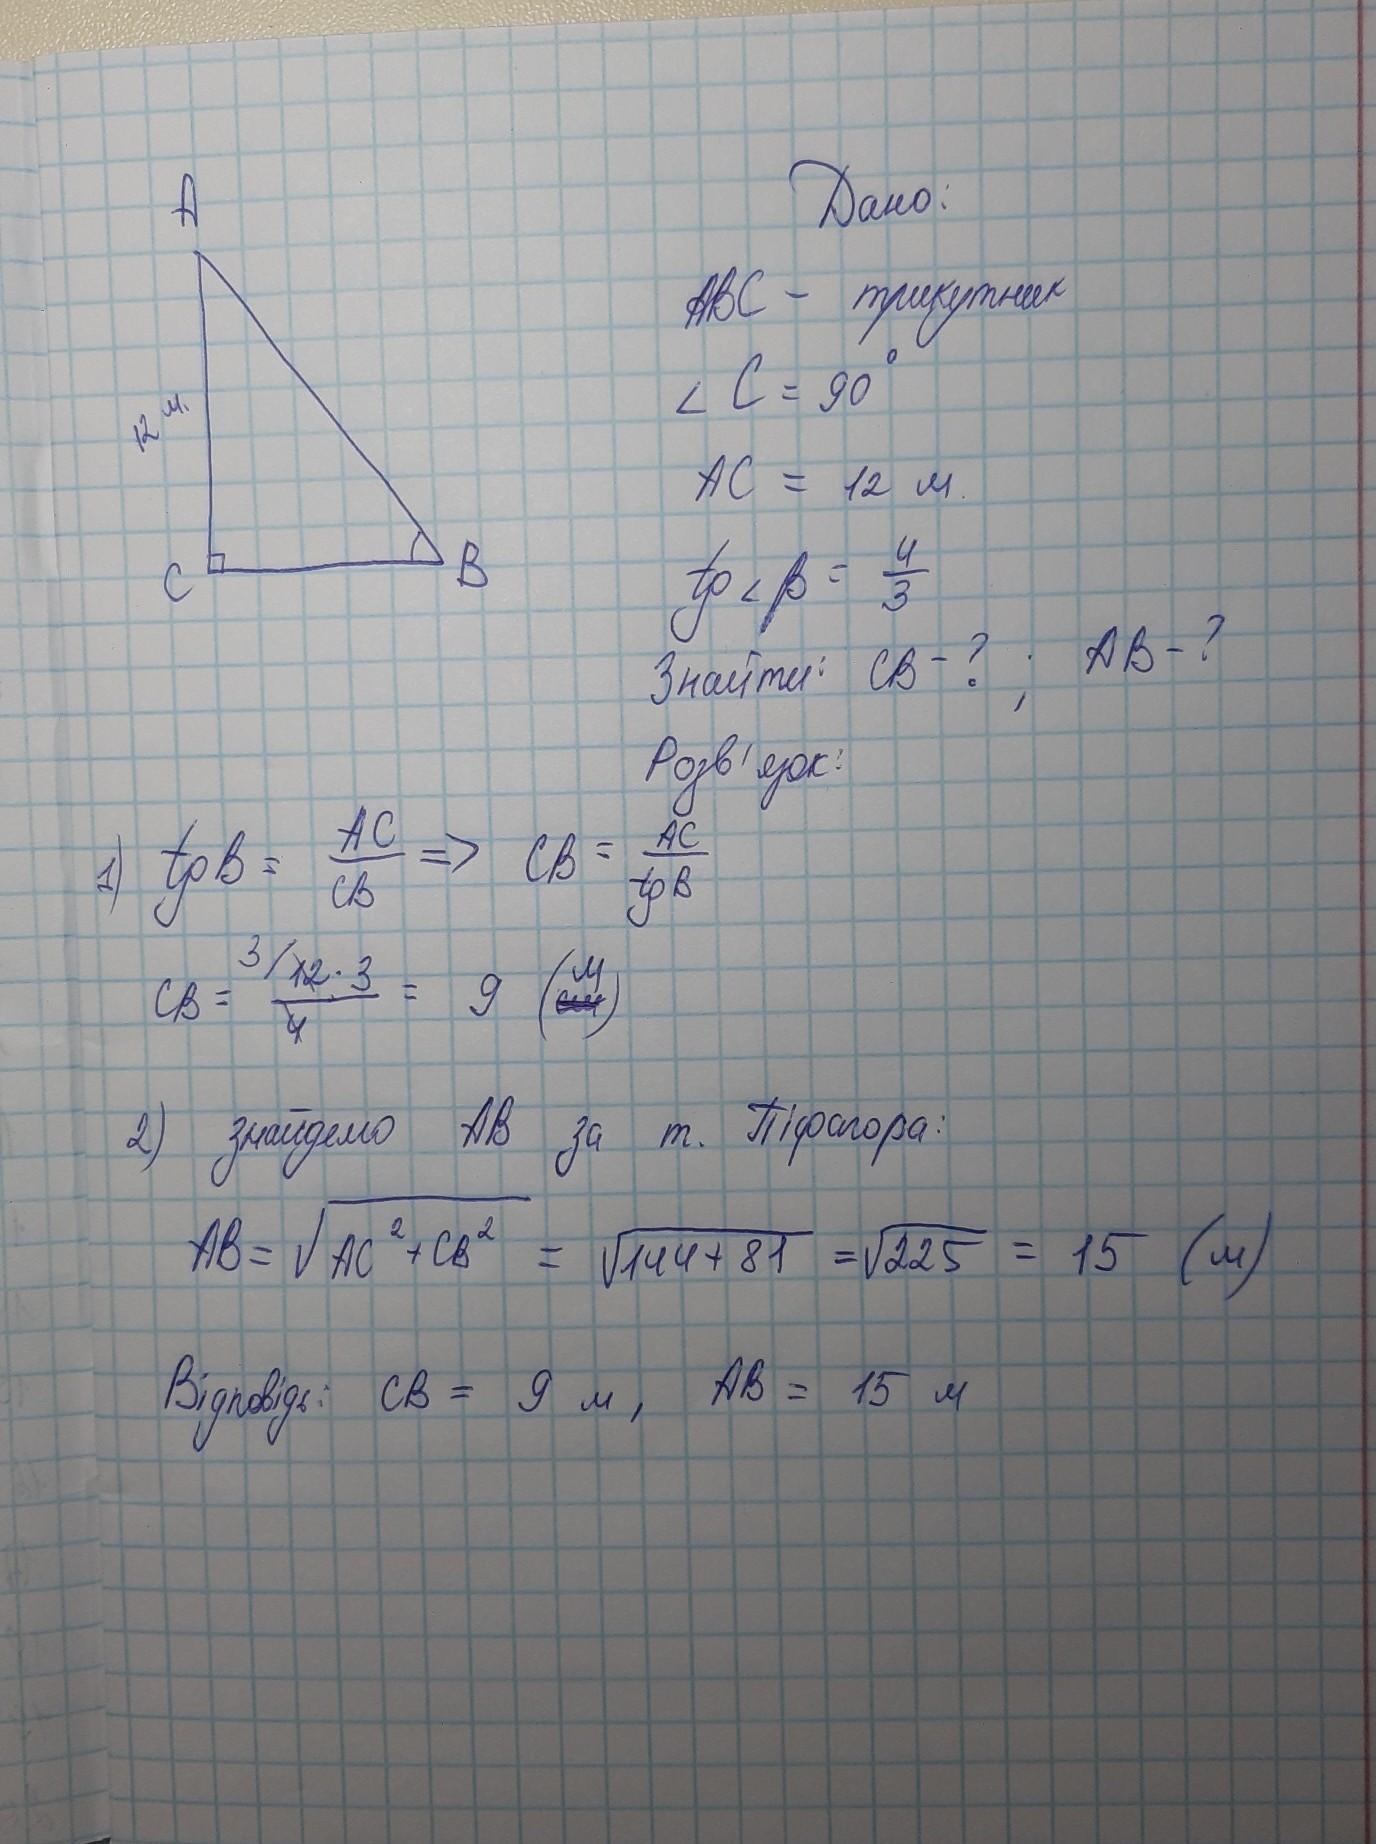 A
12 м.
C
B
Дано:
ABC - трикутник
∠ C = 90°
AC = 12 м.
tg ∠ β = 4/3
Знайти: CB - ? ; AB - ?
Розв'язок:
1) tg B = AC/CB => CB = AC/tg B
CB = 3/ 12·3/4 = 9 (м)
2) знайдемо AB за т. Піфагора:
AB = √AC²+CB² = √144+81 = √225 = 15 (м)
Відповідь: CB = 9 м, AB = 15 м